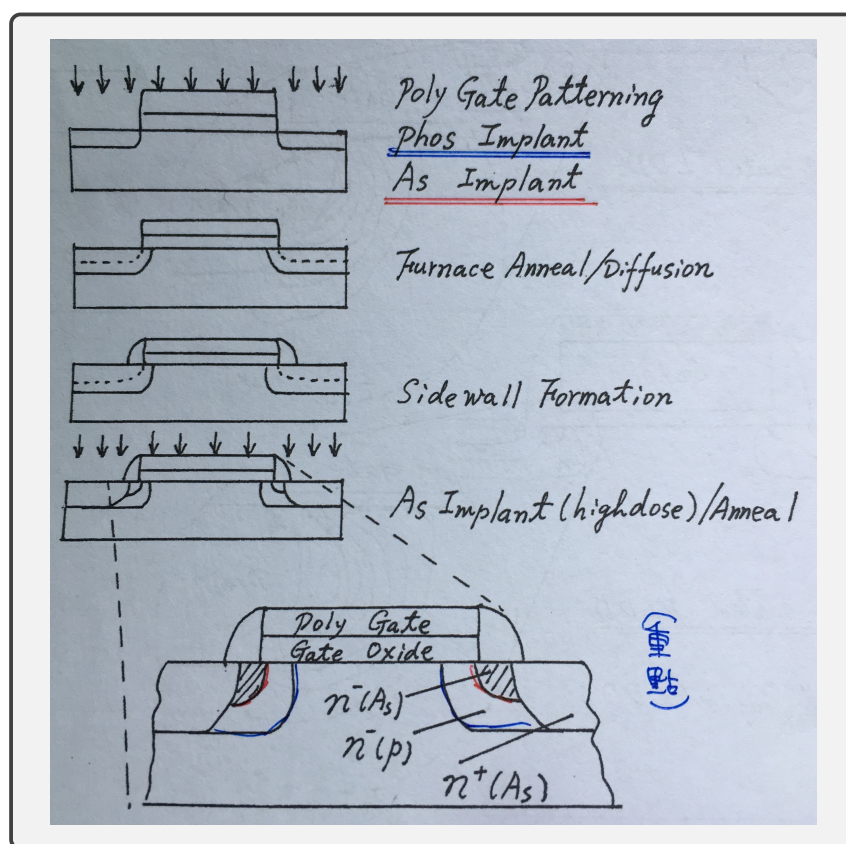 Poly Gate Patterning
Phos Implant
As Implant
Furnace Anneal/Diffusion
Sidewall Formation
As Implant (highdose)/Anneal
Poly Gate
Gate Oxide
n⁻(As)
n⁻(p)
n⁺(As)
(重點)